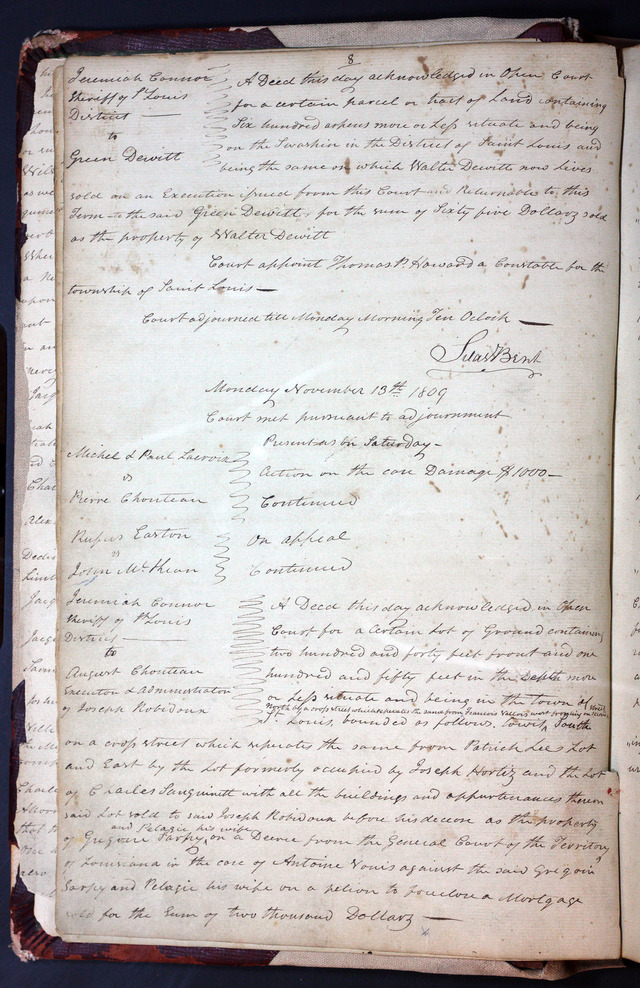 8
Jeremiah Connor
Sheriff of St Louis
District —
to
Green Dewitt
A Deed this day acknowledged in Open Court
for a certain parcel or tract of Land containing
Six hundred arpens more or less situate and being
on the in the District of Saint Louis and
being the same on which Walter Dewitt now Lives
sold on an Execution issued from this Court and Returnable to this
Term to the said Green Dewitt for the sum of Sixty five Dollars sold
as the property of Walter Dewitt
Court appoint Thomas P. Howard a Constable for the
township of Saint Louis —
Court adjourned till Monday Morning Ten Oclock —
Silas Bent
Monday November 13th 1809
Court met pursuant to adjournment
Present as on Saturday —
Michel & Paul Lacroix
vs
Pierre Chouteau
Action on the case Damage $1000 —
Continued
Rufus Easton
vs
John Mc
On appeal
Continued
Jeremiah Connor
Sheriff of St Louis
District —
to
August Chouteau
Executor & Administrator
of Joseph Robidoux
A Deed this day acknowledged in Open
Court for a Certain Lot of Ground containing
two hundred and forty feet front and one
hundred and fifty feet in the Depth more
or Less situate and being in the town of
North by a cross street which seperates the same from Francois lot
St. Louis, bounded as follows, towit, South
on a cross street which seperates the same from Patrick Lees Lot
and East by the Lot formerly occupied by Joseph Hortiz and the Lot
of Charles Sanguinett with all the buildings and appurtenances thereon
said Lot sold to said Joseph Robidoux before his decease as the property
and Pelagie his wife
of Gregoire Sarpy, on a Decree from the General Court of the Territory
of Louisiana in the case of Antoine against the said Gregoire
Sarpy and Pelagie his wife on a petion to foreclose a Mortgage
sold for the Sum of two thousand Dollars —